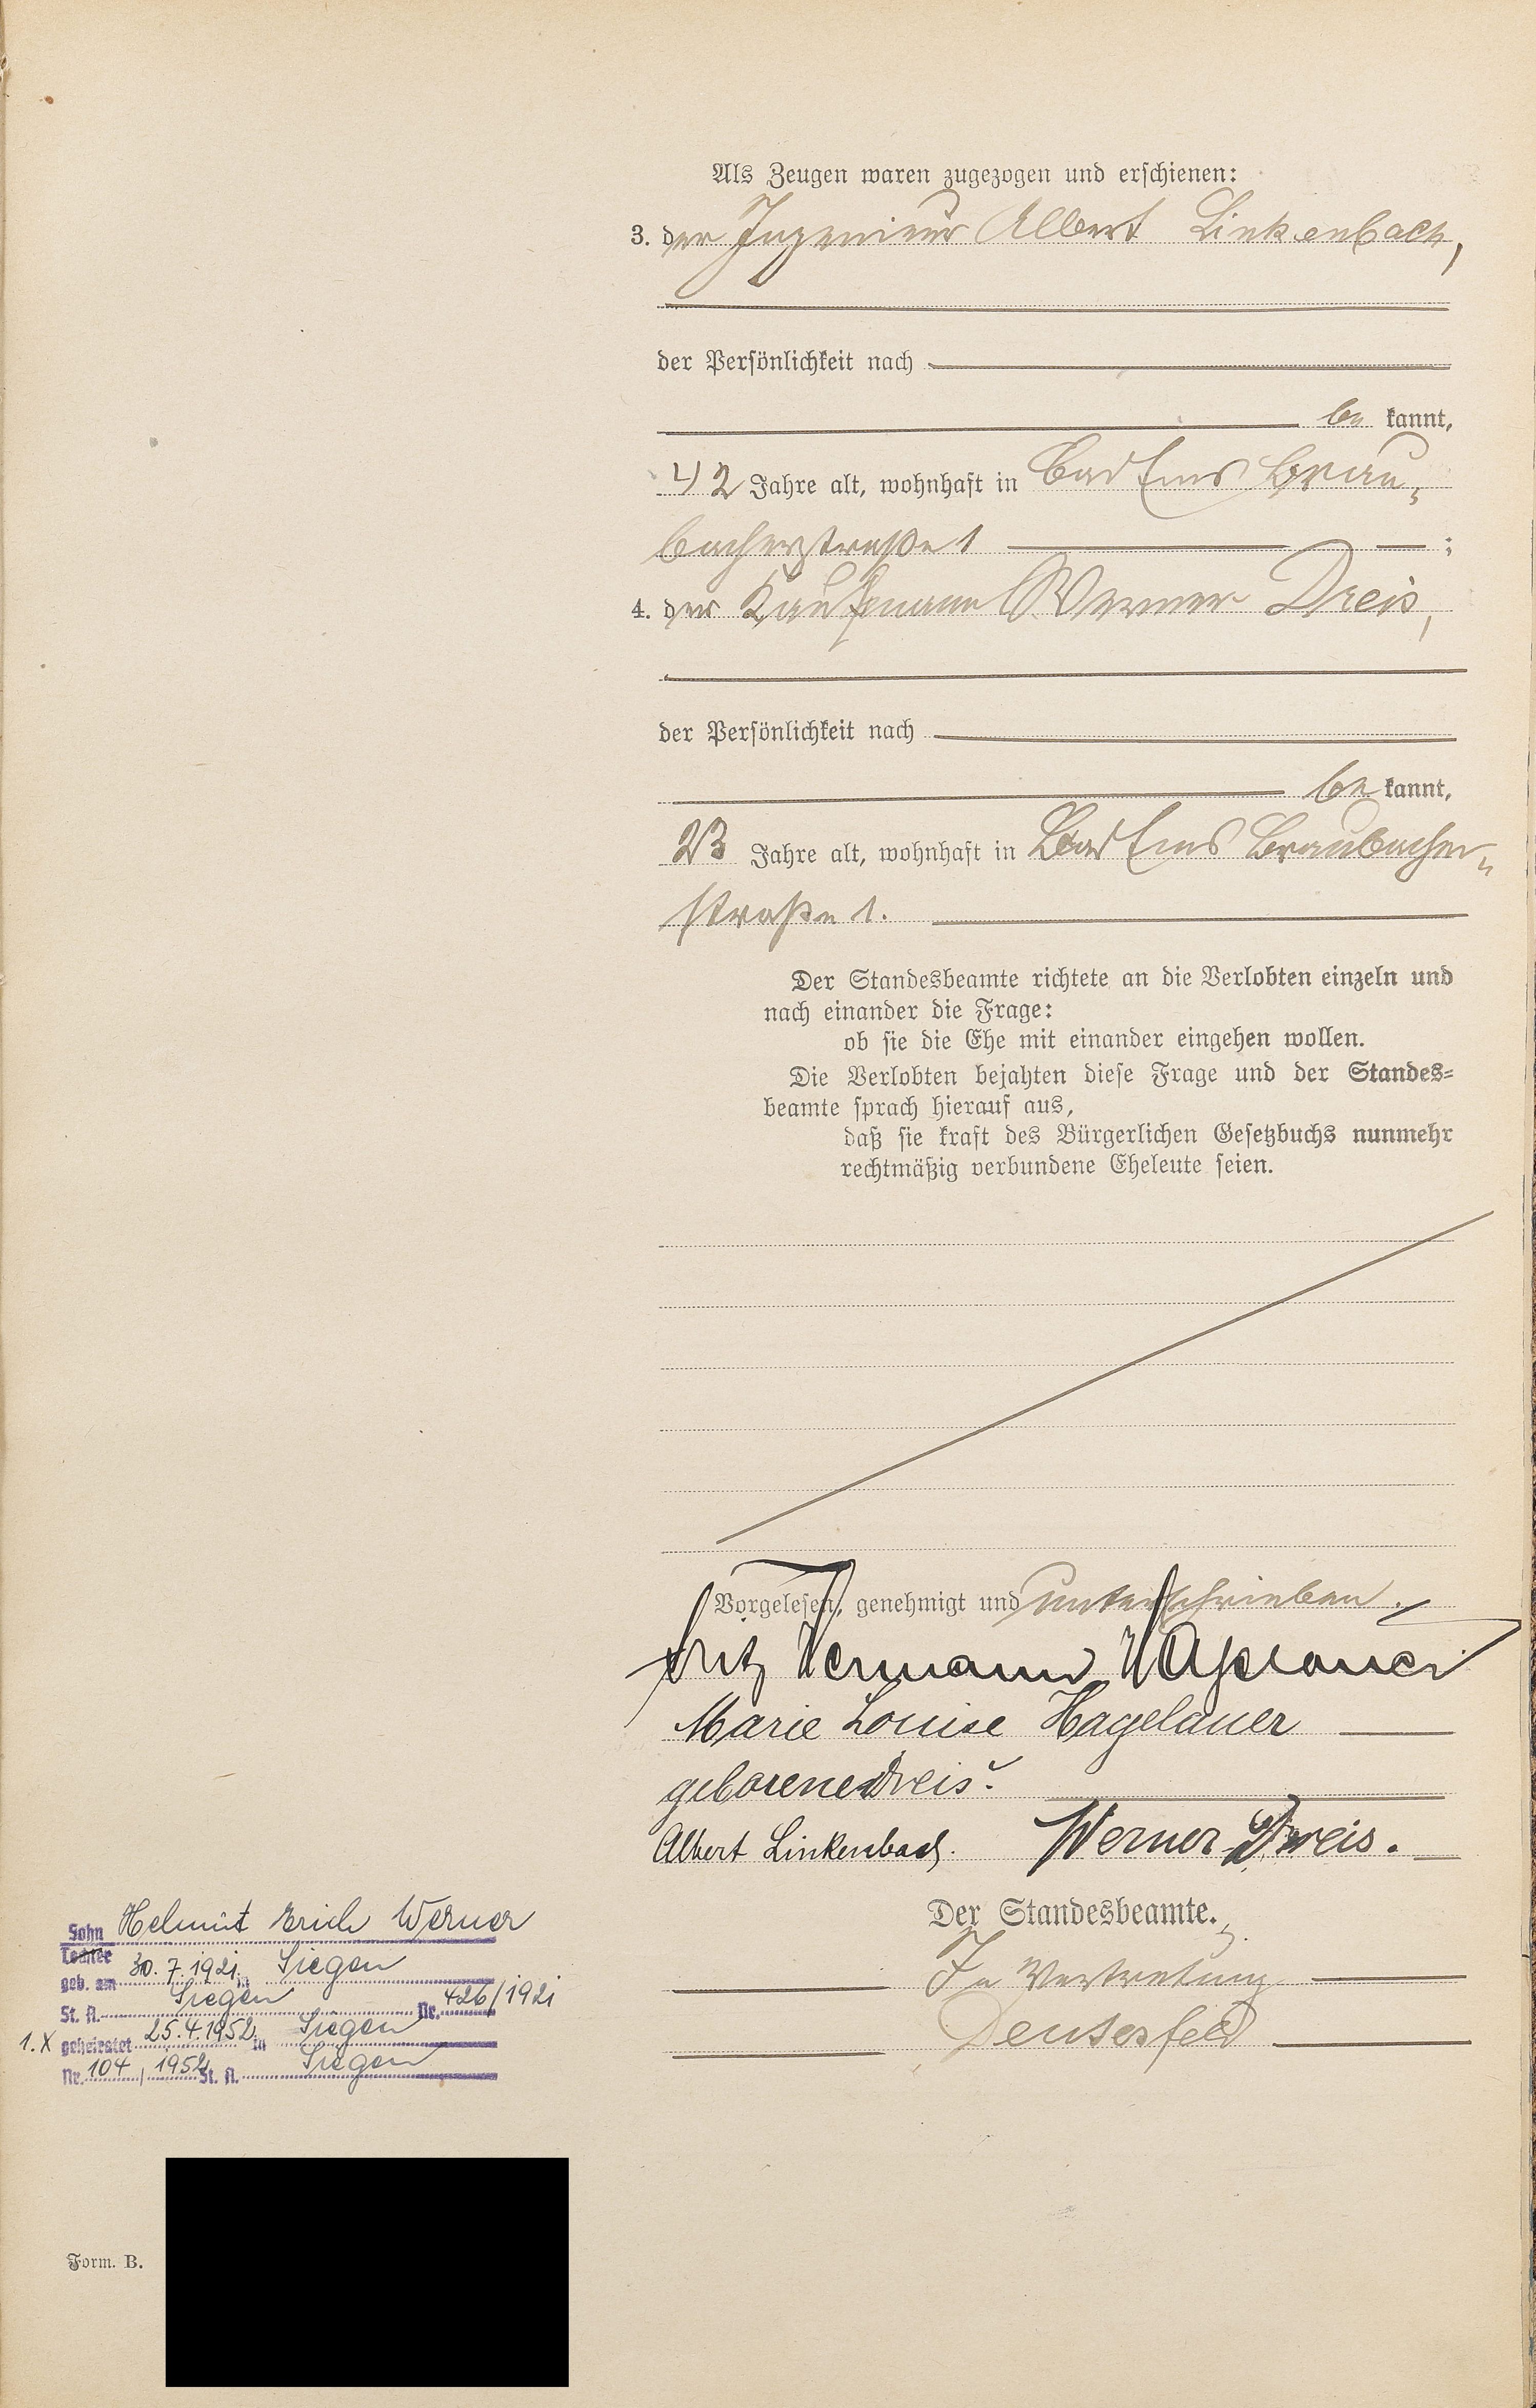 Als Zeugen waren zugezogen und erschienen:
3. der Ingenieur Albert Linkenbach,
der Persönlichkeit nach
be kannt,
42 Jahre alt, wohnhaft in Bad Ems Brau-
bacherstraße 1 ;
4. der Kaufmann Werner Dreis,
der Persönlichkeit nach
be kannt,
23 Jahre alt, wohnhaft in Bad Ems Braubacher-
straße 1.
Der Standesbeamte richtete an die Verlobten einzeln und
nach einander die Frage:
ob sie die Ehe mit einander eingehen wollen.
Die Verlobten bejahten diese Frage und der Standes-
beamte sprach hierauf aus,
daß sie kraft des Bürgerlichen Gesetzbuchs nunmehr
rechtmäßig verbundene Eheleute seien.
Vorgelesen, genehmigt und unterschrieben.
Fritz Hermann Hagelauer
Marie Louise Hagelauer
geborene Dreis.
Albert Linkenbach. Werner Dreis.
Der Standesbeamte.
In Vertretung
Deusesfeld
Sohn Helmut Erich Werner
Tochter
geb. am 30.7.1921 in Siegen
St. A. Siegen Nr. 426/1921
1. X geheiratet 25.4.1952 in Siegen
Nr. 104 / 1952 St. A. Siegen
Form. B.